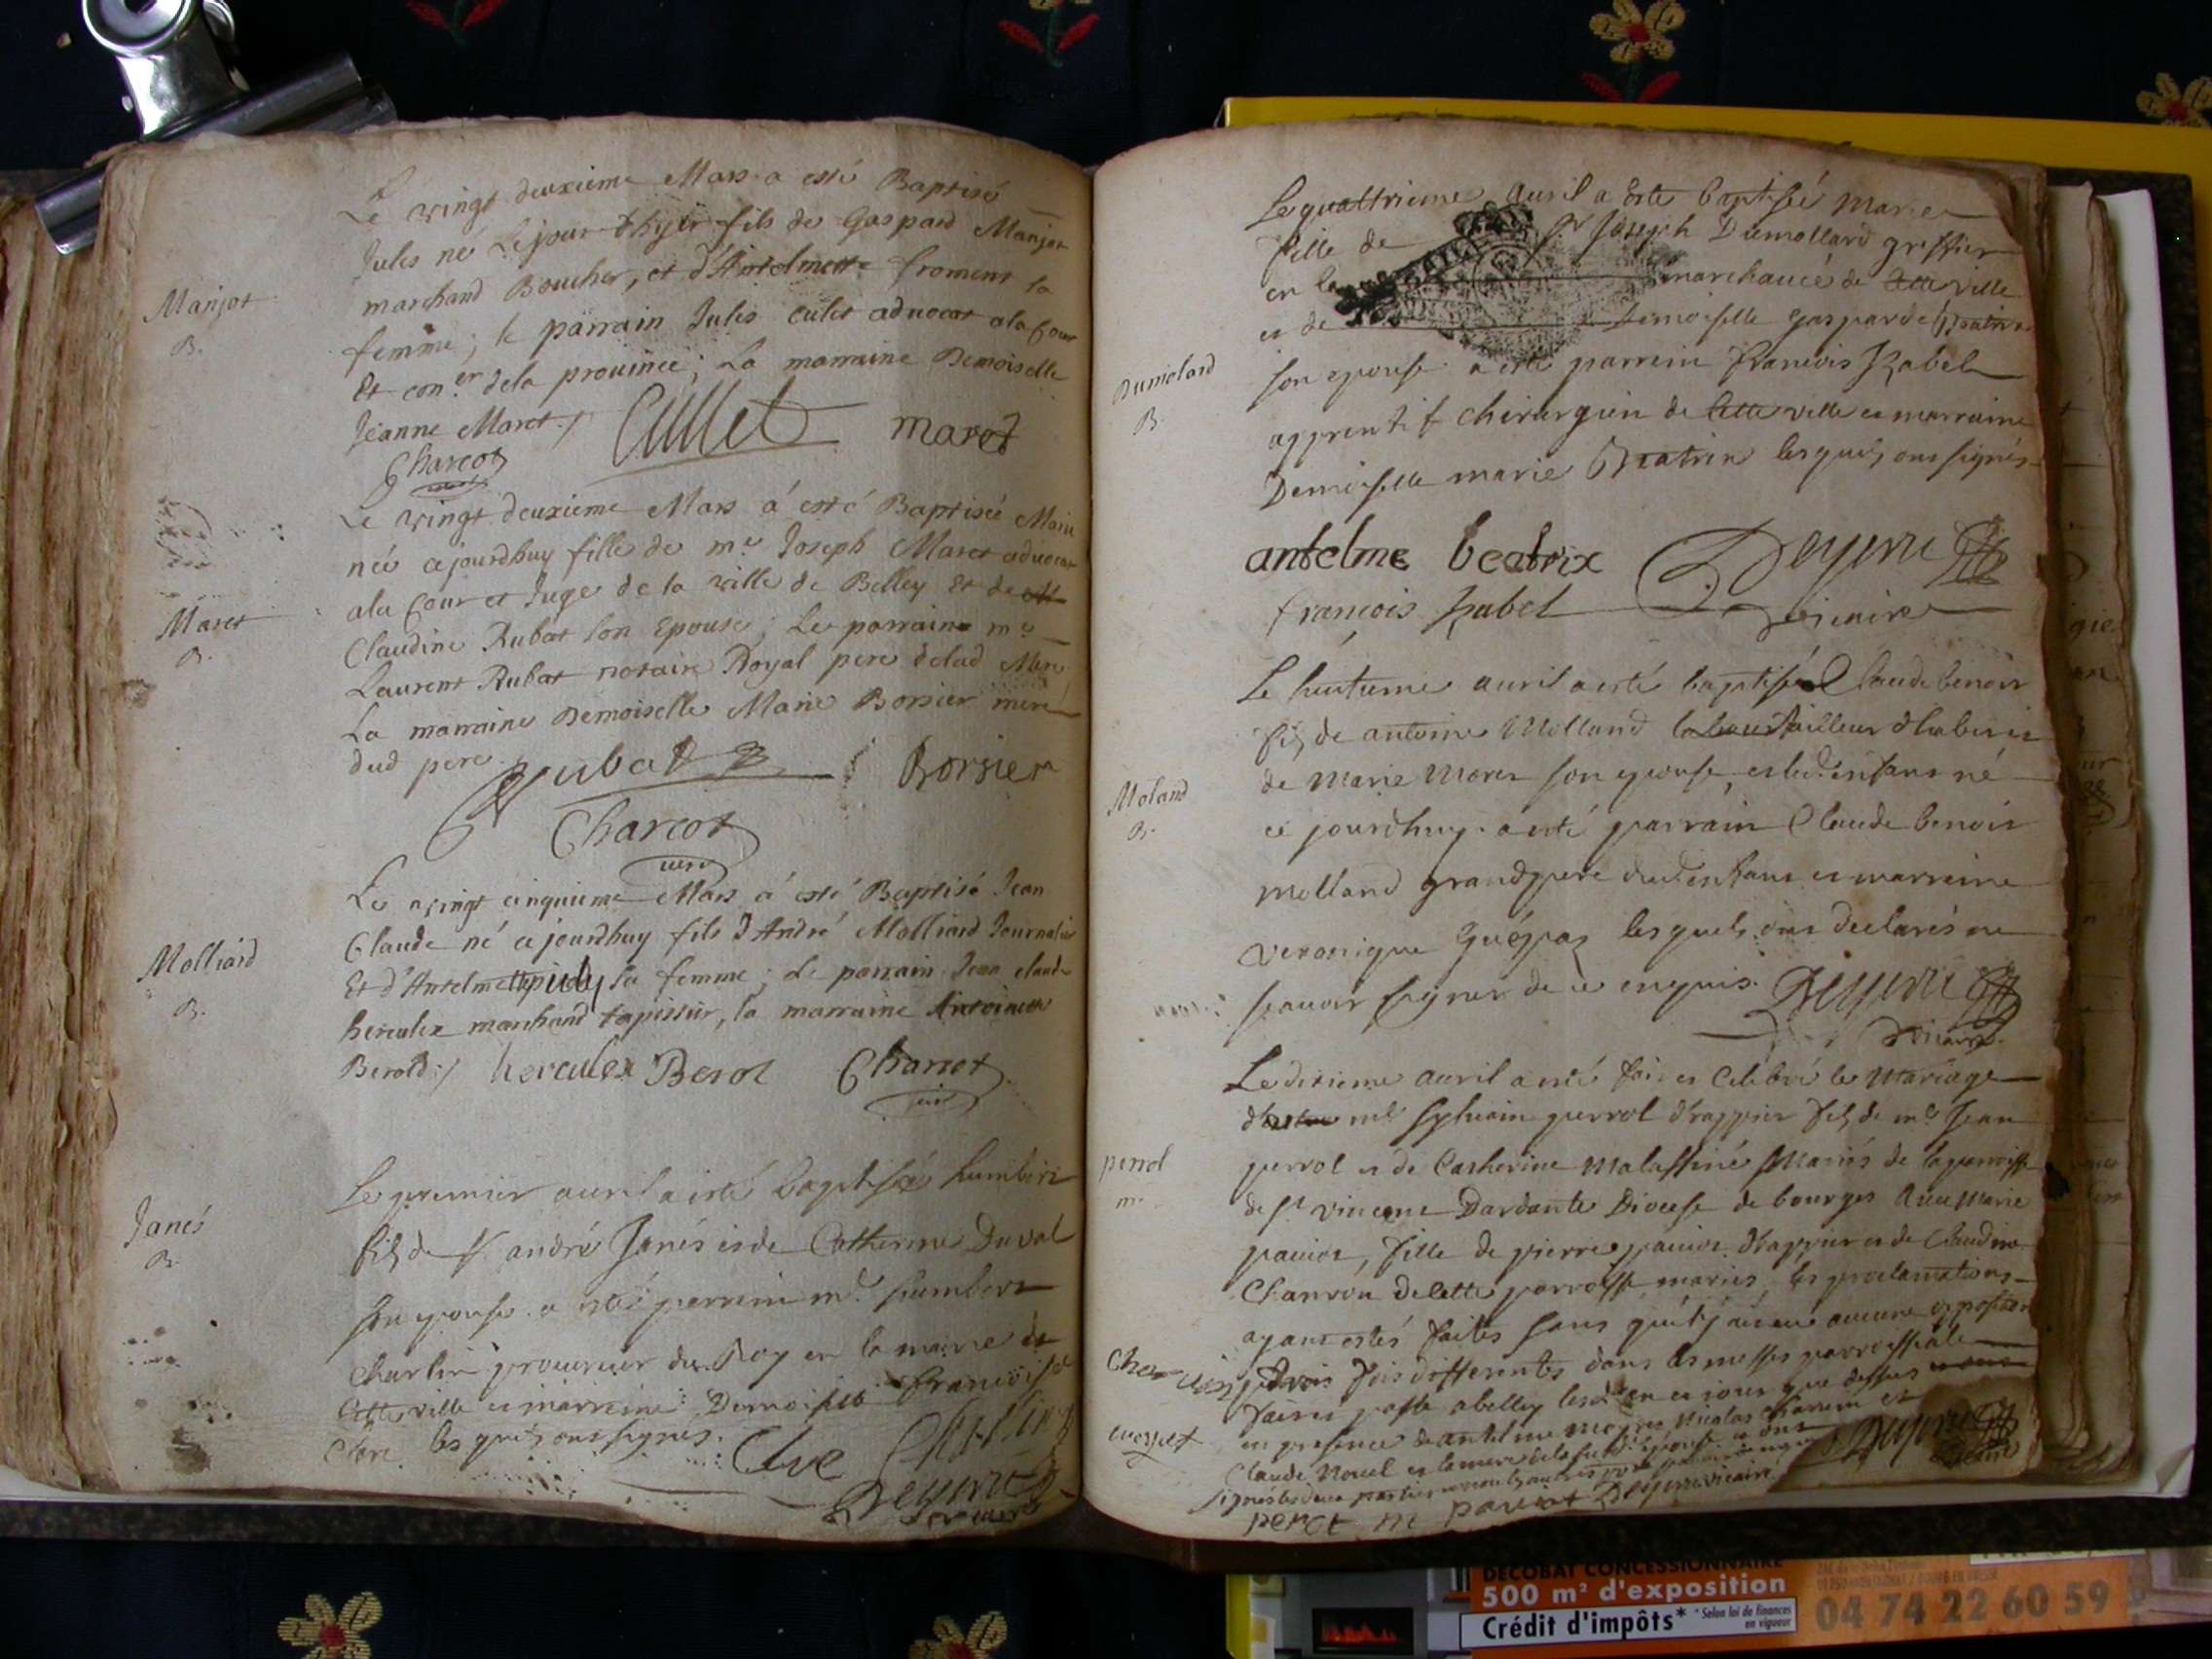 Le vingt deuxieme Mars a esté Baptisé
Jules né le jour d'hyer fils de Gaspard Manjot
marchand Boucher, et d'Antelmette froment sa
femme; le parrain Jules cullet advocat a la Cour
Et con.er de la province; La marraine Demoiselle
Jeanne Maret./ Cullet maret
Charcot
Manjot
B.
Le vingt deuxieme Mars á esté Baptiseé Marie
née cejourdhuy fille de me Joseph Maret advocat
a la Cour et Juge de la ville de Belley Et de
Claudine Rubat son Epouse; Le parrain me
Laurent Rubat notaire Royal pere de lad Mere
La marraine Demoiselle Marie Borsier mere
dud pere
Rubat Borsier
Charcot
vic
Maret
B.
Le vingt cinquieme Mars á esté Baptisé Jean
Claude né cejourdhuy fils d'André Molliard Journalier
Et d'Antelmette sa femme; Le parrain Jean claude
hercules marchand tapissier, la marraine Antoinette
Berold:/ hercules Berot Charcot
vic
Molliard
B.
Le premier avril a esté baptisé humbert
fils de Sr. andré Janés et de Catherine Duval
son epouse. a esté perrein mr. humbert
Charlin procureur du Roy en la mairie de
Cette ville et marreine Demoiselle francoise
Clere lesquels ont signes.
Deyerre
vicaire
Janés
B.
Le quattrieme avril a este baptisée Marie
fille de Sr Joseph Dumollard greffier
en la marechaucé de Cette ville
et de demoiselle gasparde
son epouse a esté parrein francois Kabel
apprentif chirurgien de Cette ville et marraine
Demoiselle marie lesquels ont signés
antelme beatrix Deyerre
francois Kabel vicaire
Dumolard
B.
Le huitieme avril a esté baptisé Claude benoit
fils de antoine Molland tailleur d'habis et
de Marie Moret son epouse, et led. enfant né
ce jourdhuy. a esté parrain Claude benoit
Molland grandpere dud. enfant et marreine
veronique lesquels ont declarés ne
scavoir signer de ce enquis. Deyerre
vicaire
Moland
B.
Le dixieme avril a esté fait et Celebré le Mariage
me Sylvain perrol drappier fils de me Jean
perrol et de Catherine Malassiné Mariés de la parroisse
de St vincent Dardante Diocese de bourges Avec Marie
paviot, fille de pierre paviot drappier et de Claudine
Chanvin de Cette parroisse mariés, les proclamations
ayant estés faites sans qu'il y ait eu aucune opposition
trois fois differentes dans les messes parroissiale
faict et passé a belley les an et jour que dessus
en presence de antelme Nicolas
Claude et la mere de la epouse
signés les deux parties
perot paviot Deyerre vicaire
Deyerre
vicaire
perrol
m.
DECOBAT CONCESSIONNAIRE
500 m² d'exposition
Crédit d'impôts* * Selon loi de finances
en vigueur
04 74 22 60 59